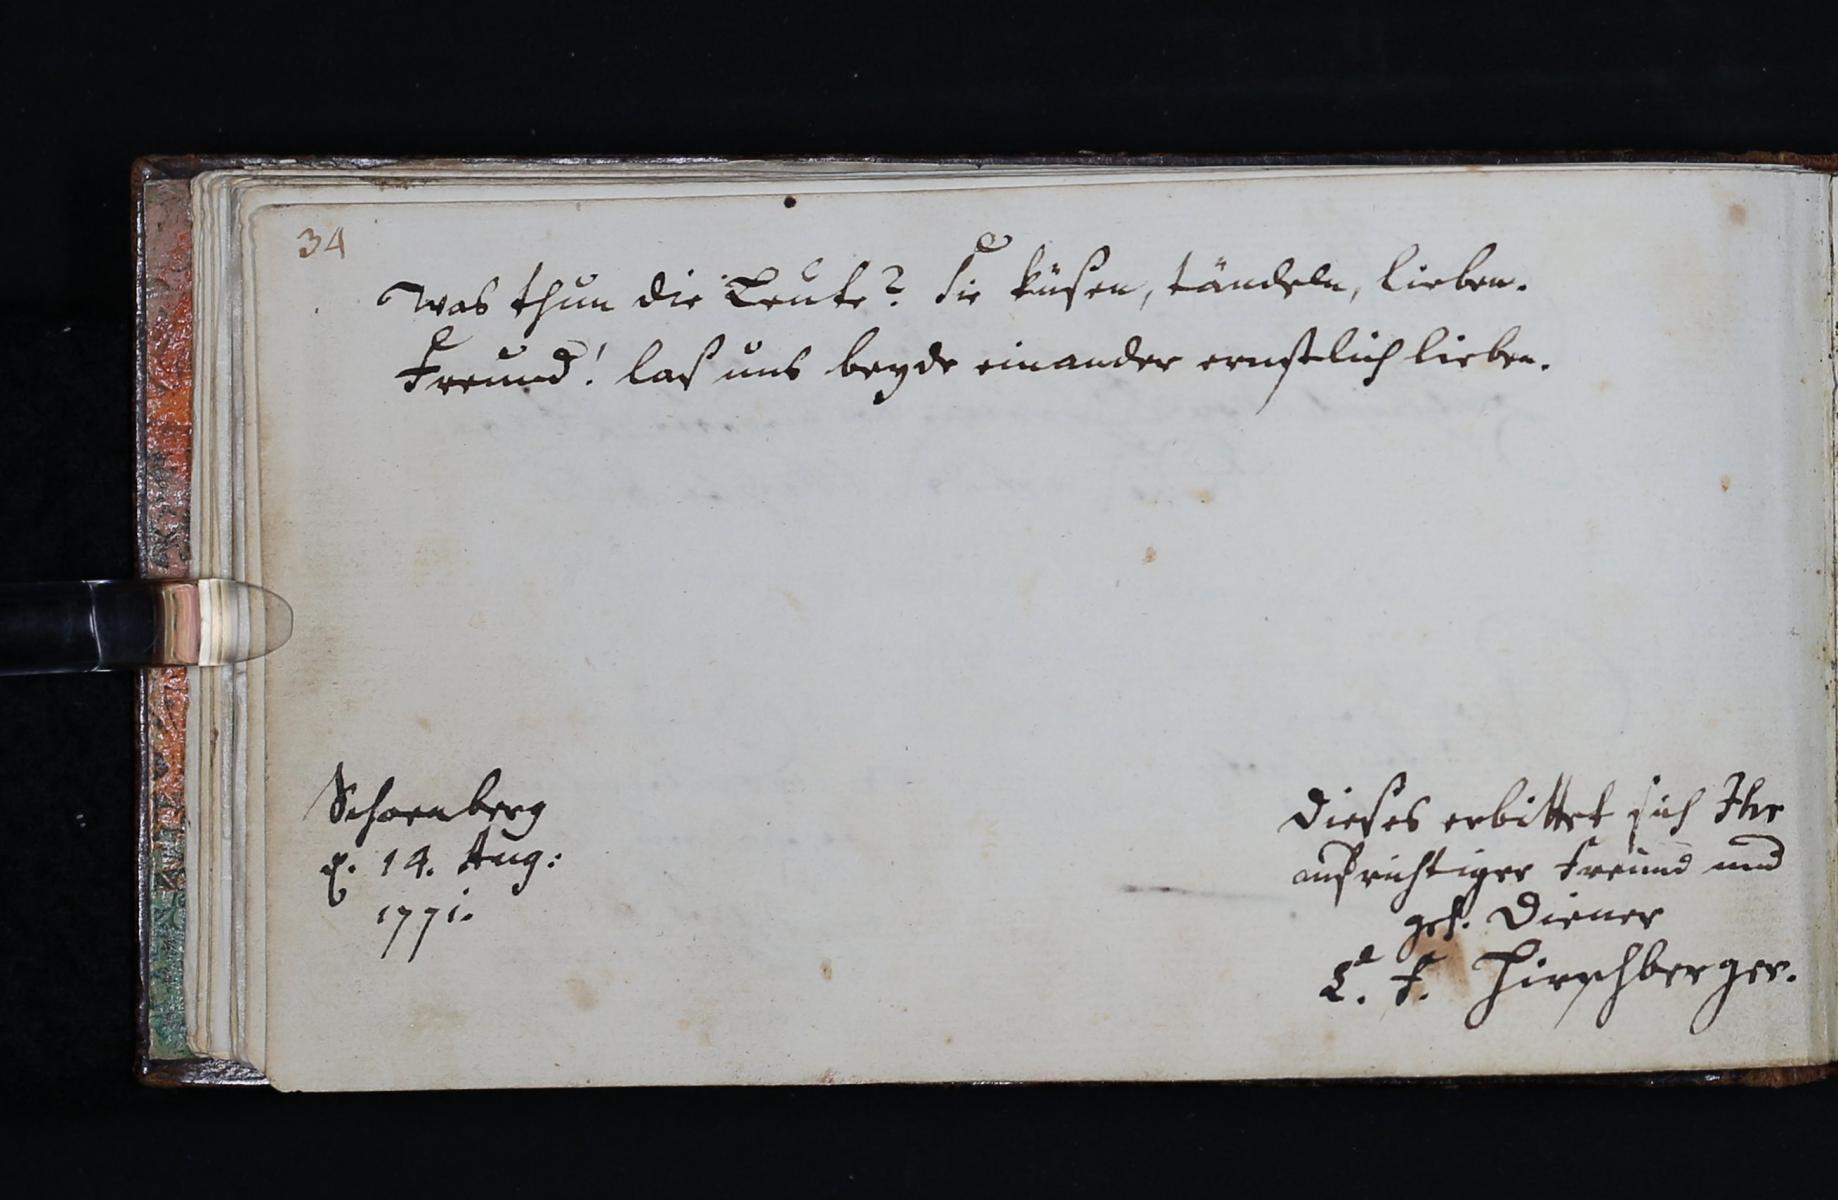 34
Was thun die Leute? Sie küßen, tändeln, lieben.
Freund! laß uns beyde einander ernstlich lieben.
Schornberg
d. 14. Aug:
1771.
Dieses erbittet sich Ihr
aufrichtiger Freund und
geh. Diener
L. F. Hirschberger.